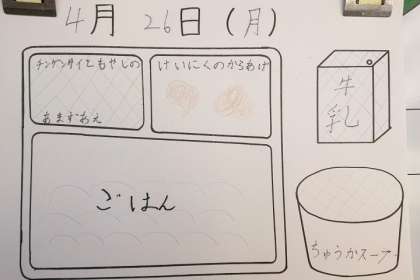 4月 26日 (月)
チンゲンサイともやしの
あまずあえ
けいにくのからあげ
牛乳
ごはん
ちゅうかスープ